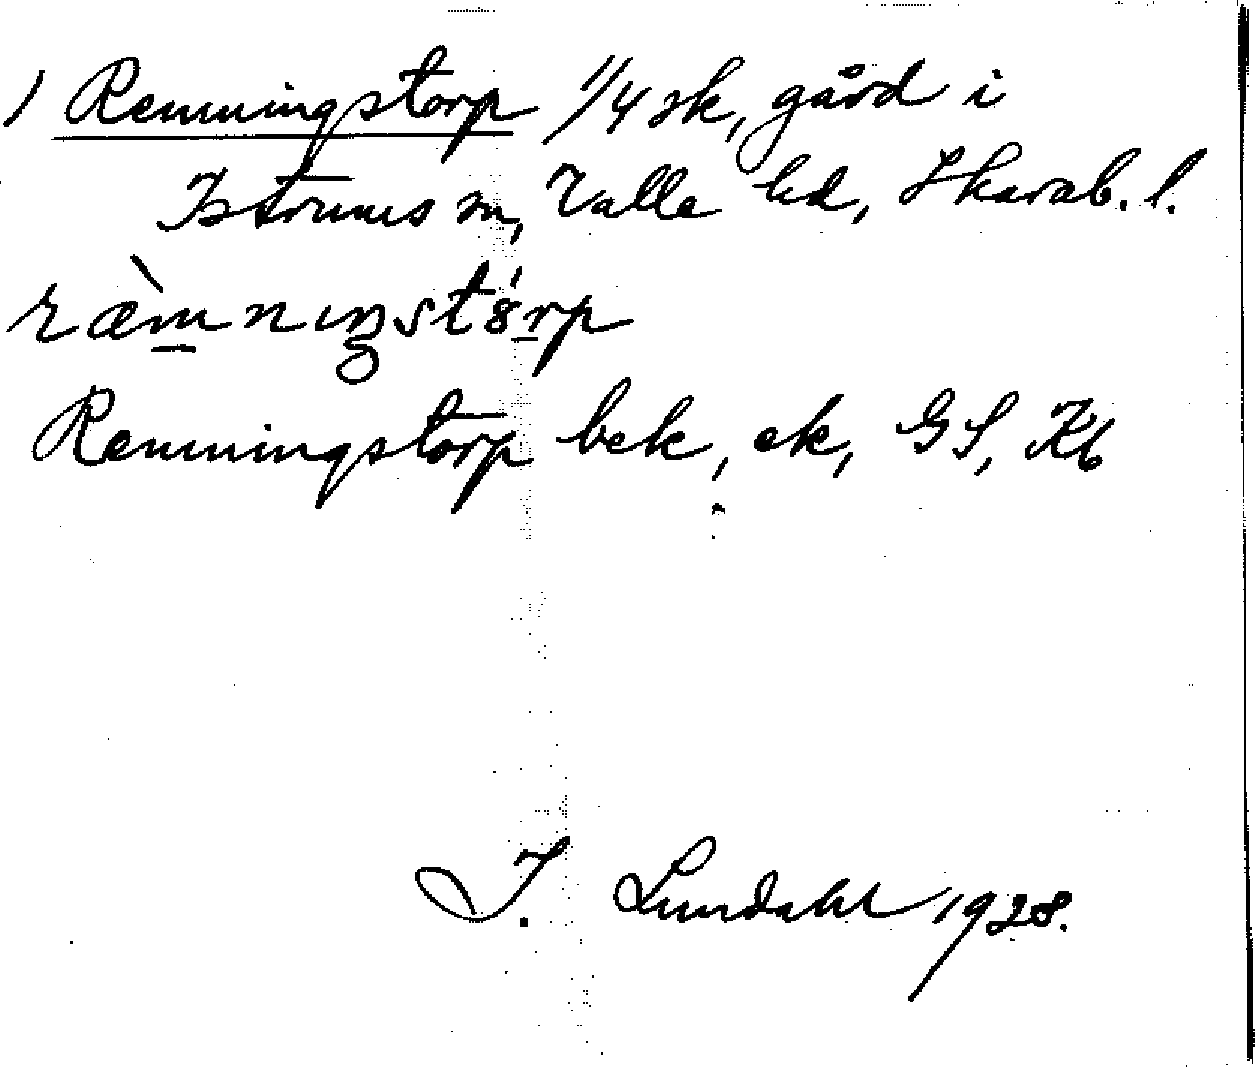 ) Remningstorp 1/4 sk, gård i
Istrums sn, Valle hd, Skarab. l.
ræ̀mnıŋstȣ́rp
Remningstorp bek, ek, GS, Kb
I. Lundahl 1928.